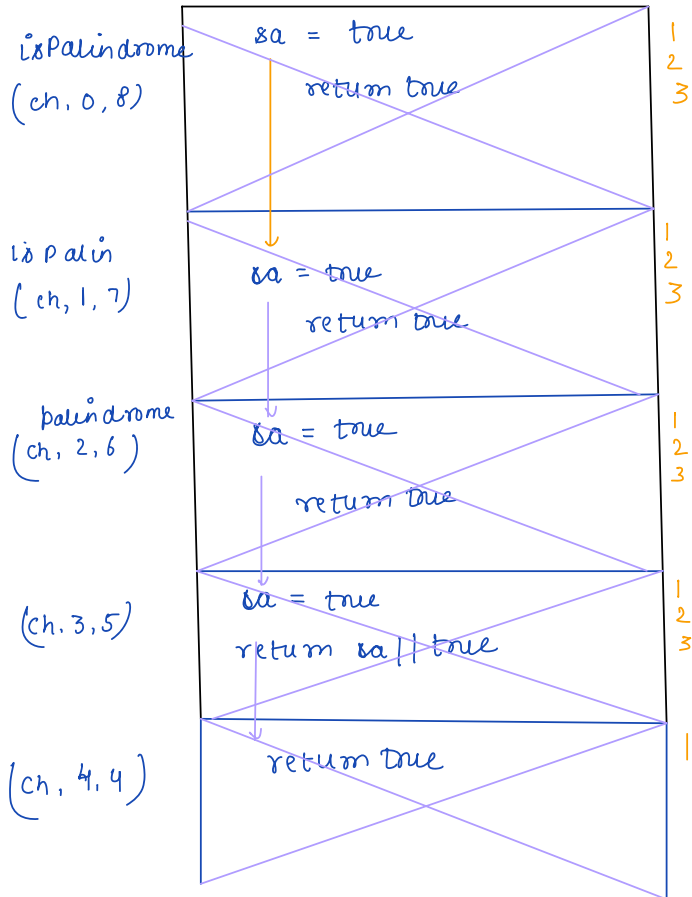 isPalindrome
(ch, 0, 8)
sa = true
return true
1
2
3
is Palin
(ch, 1, 7)
sa = true
return true
1
2
3
palindrome
(ch, 2, 6)
sa = true
return true
1
2
3
(ch, 3, 5)
sa = true
return sa || true
1
2
3
(ch, 4, 4)
return true
1